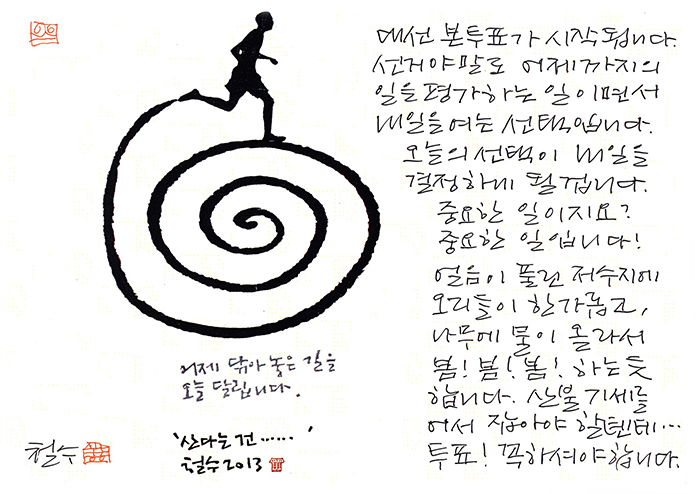 대선 본투표가 시작됩니다.
선거야말로 어제까지의
일을 평가하는 일이면서
내일을 여는 선택입니다.
오늘의 선택이 내일을
결정하게 될겁니다.
중요한 일이지요?
중요한 일입니다!
얼음이 풀린 저수지에
오리들이 한가롭고,
나무에 물이 올라서
봄! 봄! 봄! 하는 듯
합니다. 산불 기세를
어서 잡아야 할텐데…
투표! 꼭 하셔야합니다.
어제 닦아 놓은 길을
오늘 달립니다.
'산다는 건……'
철수 2013
철수